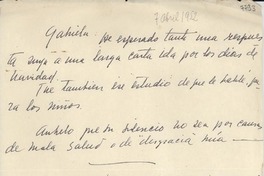 7 Abril / 1952
7793
Gabriela: He esperado tanto una respues
ta suya a una larga carta ida por los días de
Navidad.
Fue tambien un estudio de que le hablé, pa
ra los niños.
Anhelo que su silencio no sea por causa
de mala salud o de desgracia mía —